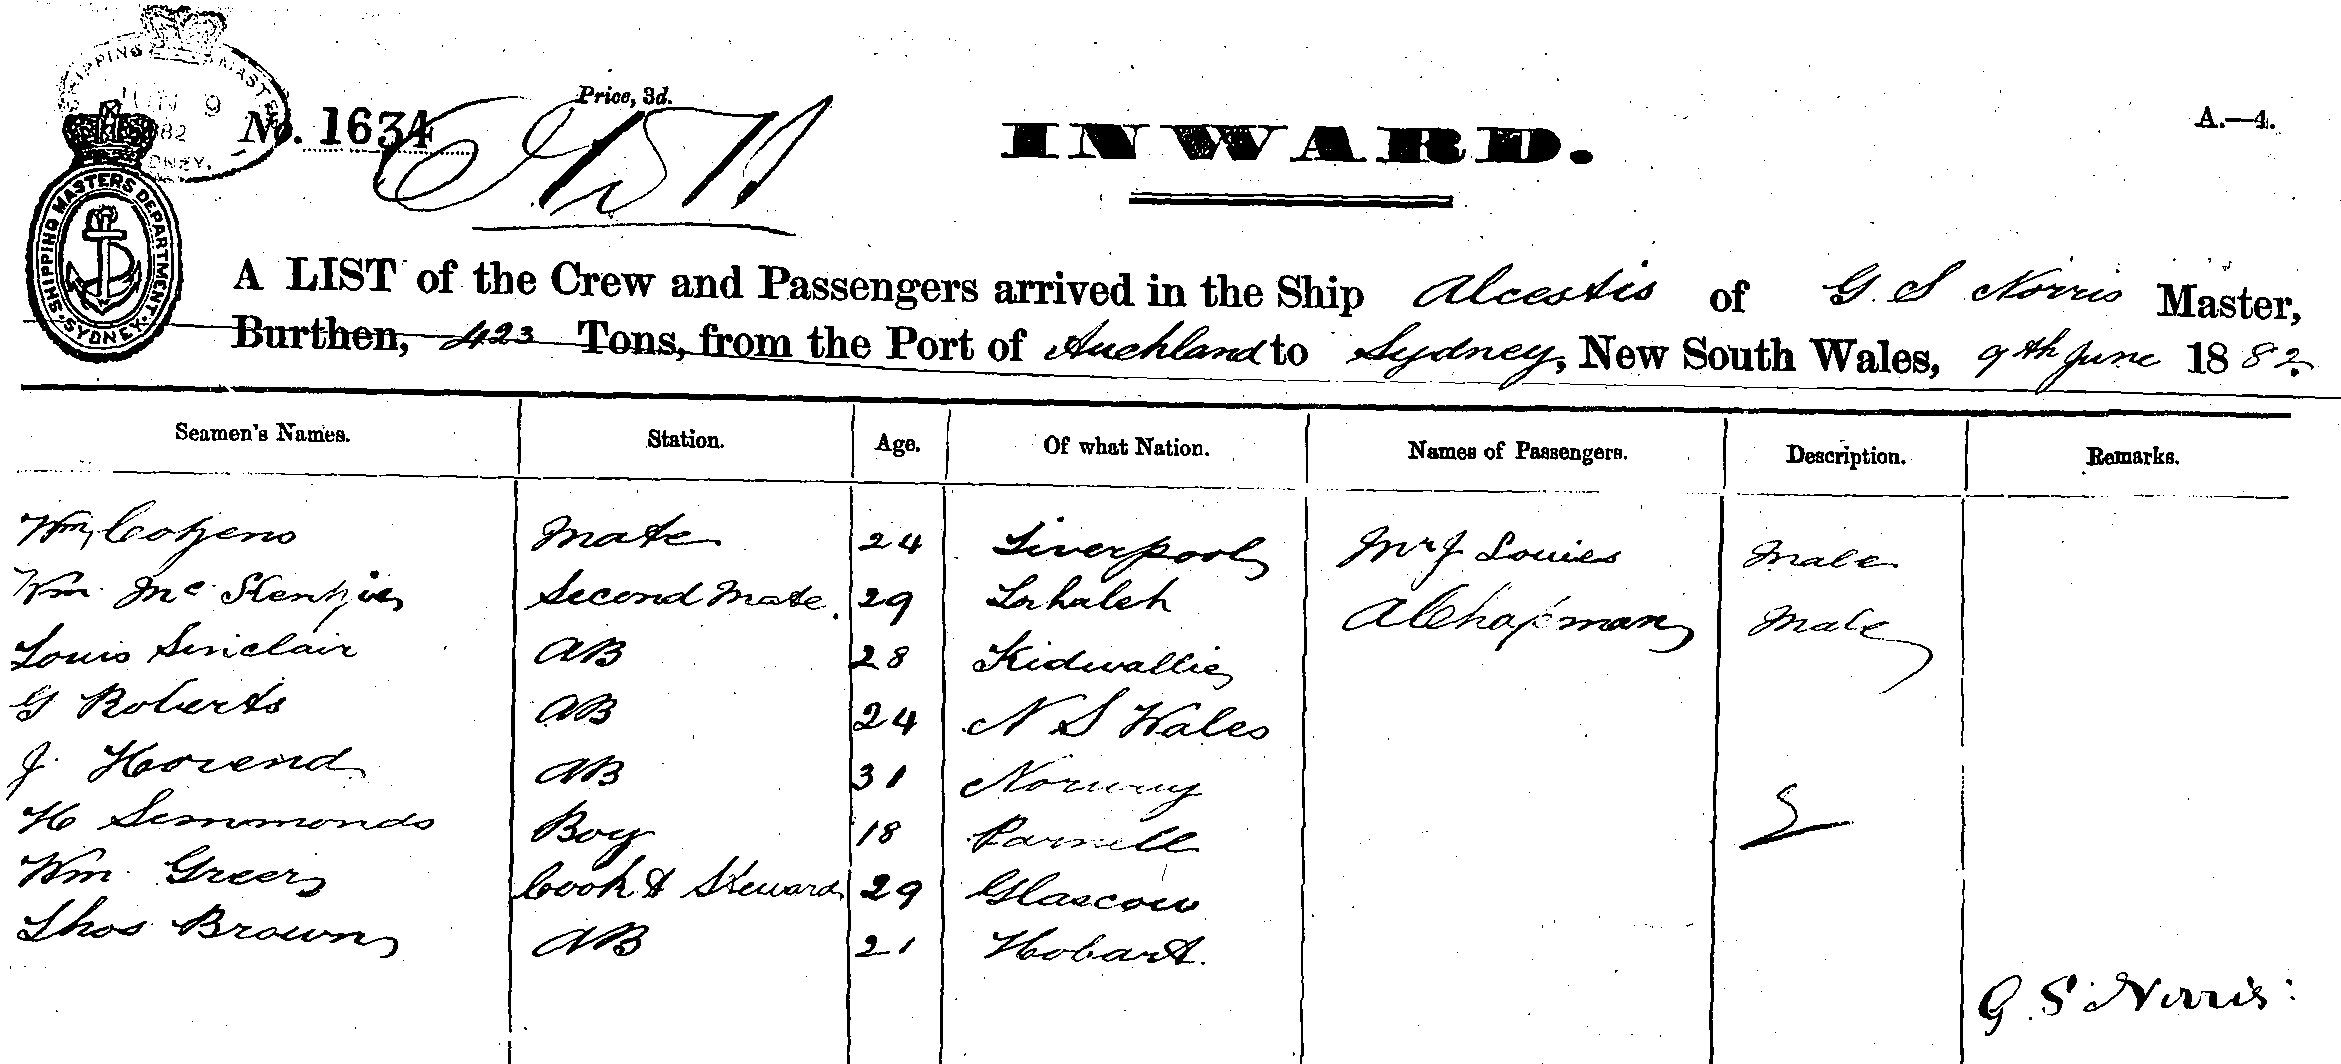 SHIPPING MASTER
JUN 9
SYDNEY.
Price, 3d.
No. 1634
INWARD.
A.—4.
SHIPPING MASTERS DEPARTMENT. SYDNEY.
A LIST of the Crew and Passengers arrived in the Ship Alcestis of G. S Norris Master,
Burthen, 423 Tons, from the Port of Auckland to Sydney, New South Wales, 9th June 1882.
Seamen's Names. Station. Age. Of what Nation. Names of Passengers. Description. Remarks.
Wm Cozens Mate 24 Liverpool Mr J Louies Male
Wm. Mc Kenzie Second Mate. 29 A Chapman Male
Louis Sinclair AB 28 Kidwallie
G Roberts AB 24 N S Wales
J. Hovend AB 31 Norway
H Simmonds Boy 18 Parnell
Wm. Greer Cook & Steward 29 Glascow
Thos Brown AB 21 Hobart.
G. S. Norris